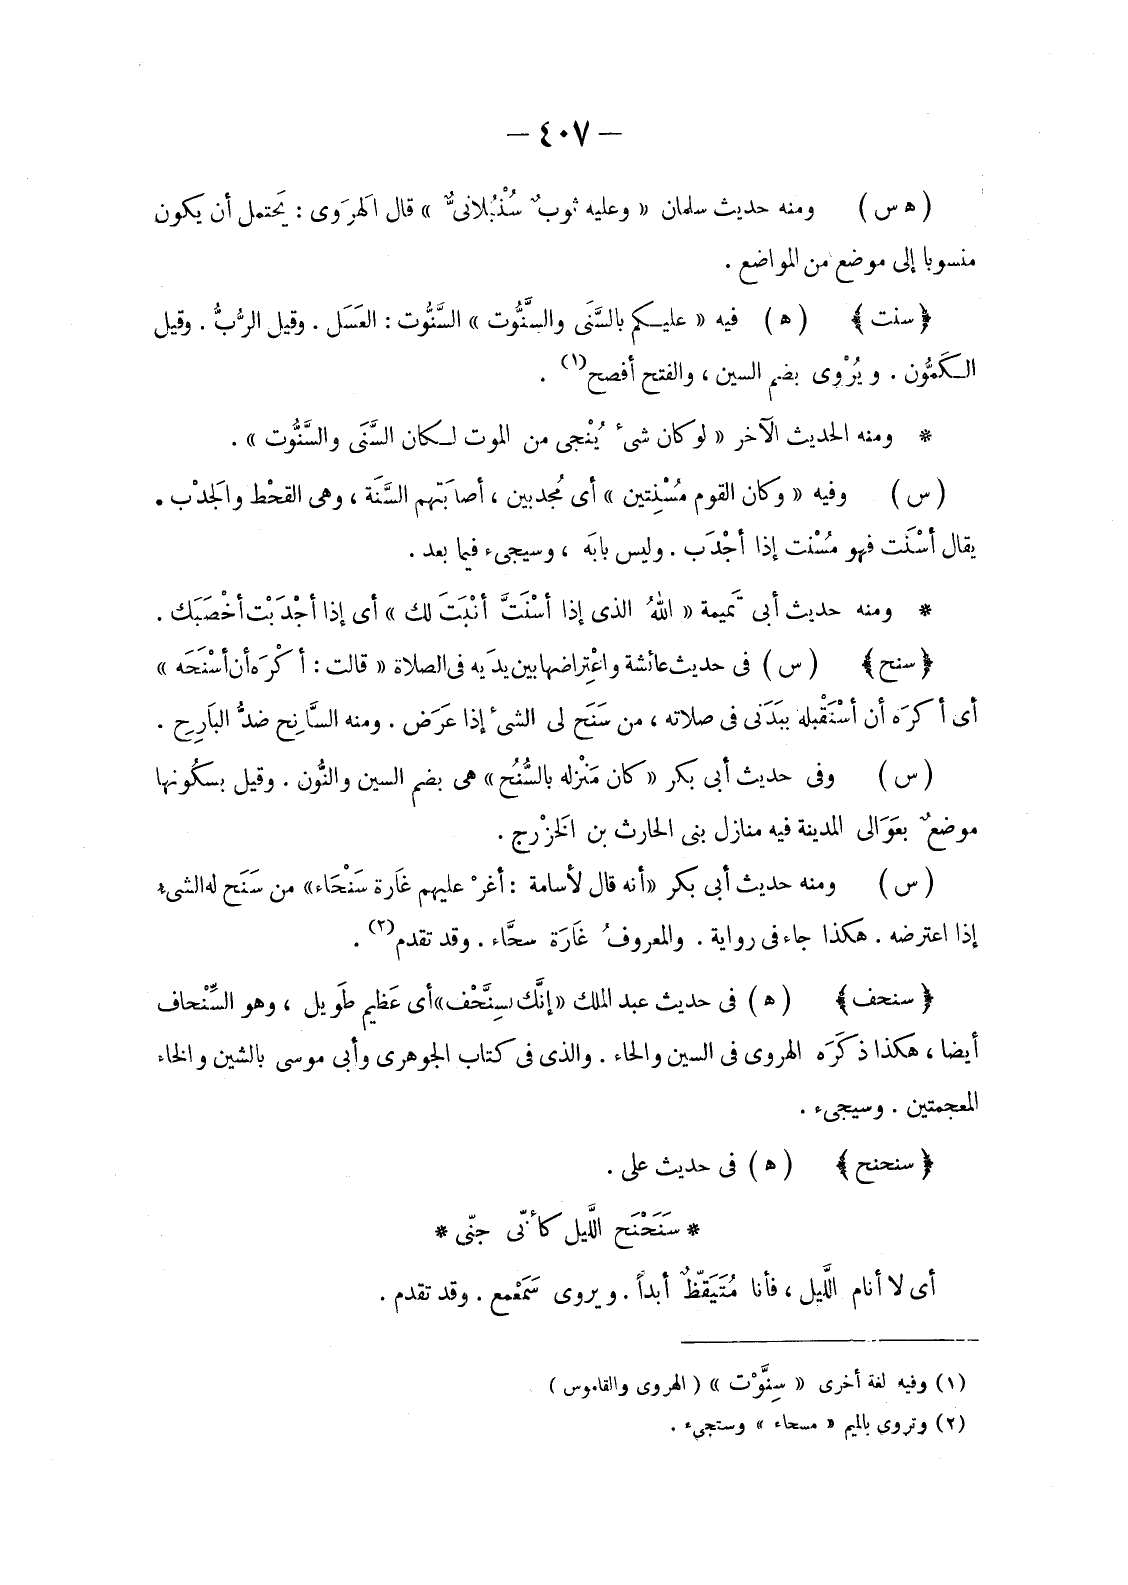 — ٤٠٧ —
(ه س) ومنه حديث سلمان « وعليه ثوبٌ سُنْبُلانىٌّ » قال الهَرَوى : يَحتمل أن يكون
منسوبا إلى موضع من المواضع .
﴿ سنت ﴾ (ه) فيه « عليكم بالسَّنَى والسَّنُّوت » السَّنُّوت : العَسَل . وقيل الرُّبُّ . وقيل
الكَمُّون . ويُرْوى بضم السين ، والفتح أفصح(١) .
* ومنه الحديث الآخر « لو كان شىءٌ يُنْجى من الموت لكان السَّنَى والسَّنُّوت » .
(س) وفيه « وكان القوم مُسْنِتين » أى مُجدبين ، أصابَتهم السَّنَة ، وهى القحْط والجَدْب .
يقال أسْنَت فهو مُسْنت إذا أجْدَب . وليس بابَه ، وسيجىء فيما بعد .
* ومنه حديث أبى تَميمة « اللهُ الذى إذا أسْنَتَّ أنْبَتَ لك » أى إذا أجْدَبْت أخْصَبَك .
﴿ سنح ﴾ (س) فى حديث عائشة واعْتِراضها بين يدَيه فى الصلاة « قالت : أكْرَه أن أسْنَحَه »
أى أكرَه أن أسْتَقْبله ببَدَنى فى صلاته ، من سَنَح لى الشىءُ إذا عَرَض . ومنه السَّانِح ضدُّ البَارِح .
(س) وفى حديث أبى بكر « كان مَنْزله بالسُّنُح » هى بضم السين والنُّون . وقيل بسكُونها
موضعٌ بعَوَالى المدينة فيه منازل بنى الحارث بن الخَزْرج .
(س) ومنه حديث أبى بكر « أنه قال لأسامة : أغرْ عليهم غَارة سَنْحَاء » من سَنَح له الشىء
إذا اعترضه . هكذا جاء فى رواية . والمعروفُ غَارَة سحَّاء . وقد تقدم(٢) .
﴿ سنحف ﴾ (ه) فى حديث عبد الملك « إنَّك لسِنَّحْف » أى عَظيم طَويل ، وهو السِّنْحاف
أيضا ، هكذا ذكَرَه الهروى فى السين والحاء . والذى فى كتاب الجوهرى وأبى موسى بالشين والخاء
المعجمتين . وسيجىء .
﴿ سنحنح ﴾ (ه) فى حديث على .
* سَنَحْنَح اللَّيل كأنّى جنّى *
أى لا أنام اللَّيل ، فأنا مُتَيَقّظٌ أبداً . ويروى سَمَعْمع . وقد تقدم .
(١) وفيه لغة أخرى « سِنَّوْت » ( الهروى والقاموس )
(٢) وتروى بالميم « مسحاء » وستجىء .